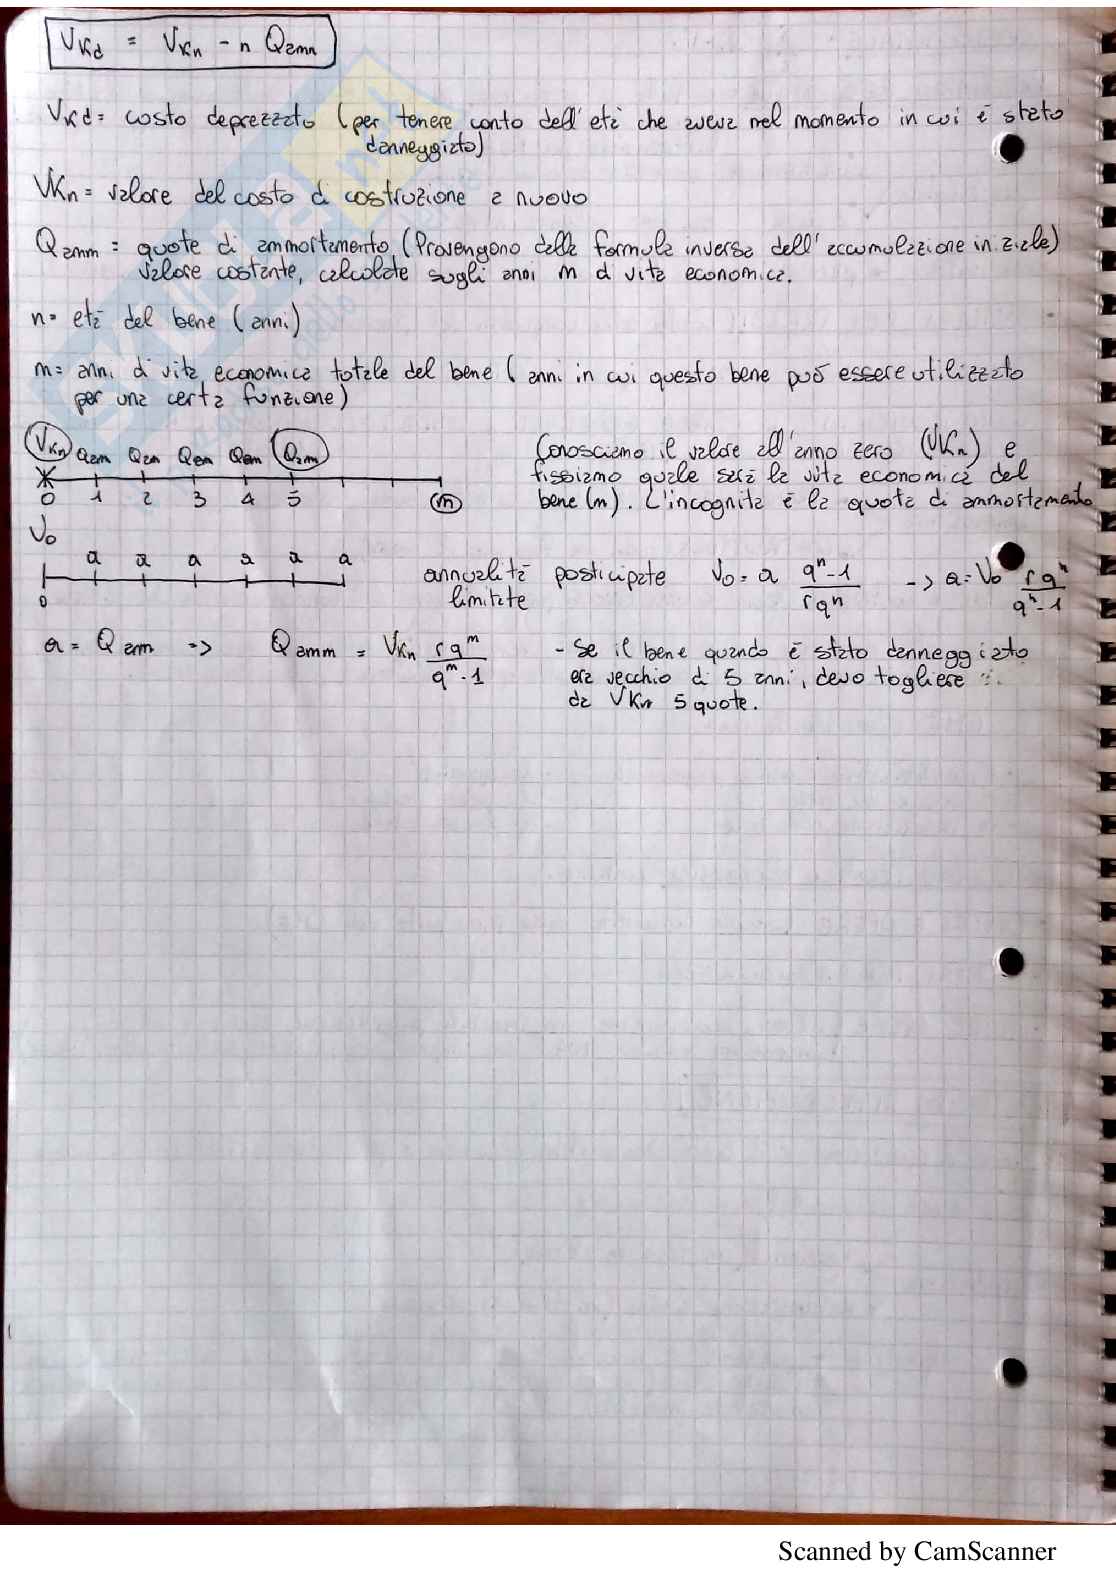 V_Kd = V_Kn - n Q_amm
V_Kd = costo deprezzato (per tenere conto dell'età che aveva nel momento in cui è stato
danneggiato)
V_Kn = valore del costo di costruzione a nuovo
Q_amm = quote di ammortamento (Provengono dalla formula inversa dell'accumulazione iniziale)
valore costante, calcolate sugli anni m di vita economica.
n = età del bene (anni)
m = anni di vita economica totale del bene (anni in cui questo bene può essere utilizzato
per una certa funzione)
V_Kn Q_am Q_am Q_am Q_am Q_am
0 1 2 3 4 5 m
Conosciamo il valore all'anno zero (V_Kn) e
fissiamo quale sarà la vita economica del
bene (m). L'incognita è la quota di ammortamento
V_0
a a a a a a
0
annualità posticipate
limitate
V_0 = a (q^n - 1)/(r q^n) -> a = V_0 (r q^n)/(q^n - 1)
a = Q_am => Q_amm = V_Kn (r q^m)/(q^m - 1)
- Se il bene quando è stato danneggiato
era vecchio di 5 anni, devo togliere
da V_Kn 5 quote.
Scanned by CamScanner